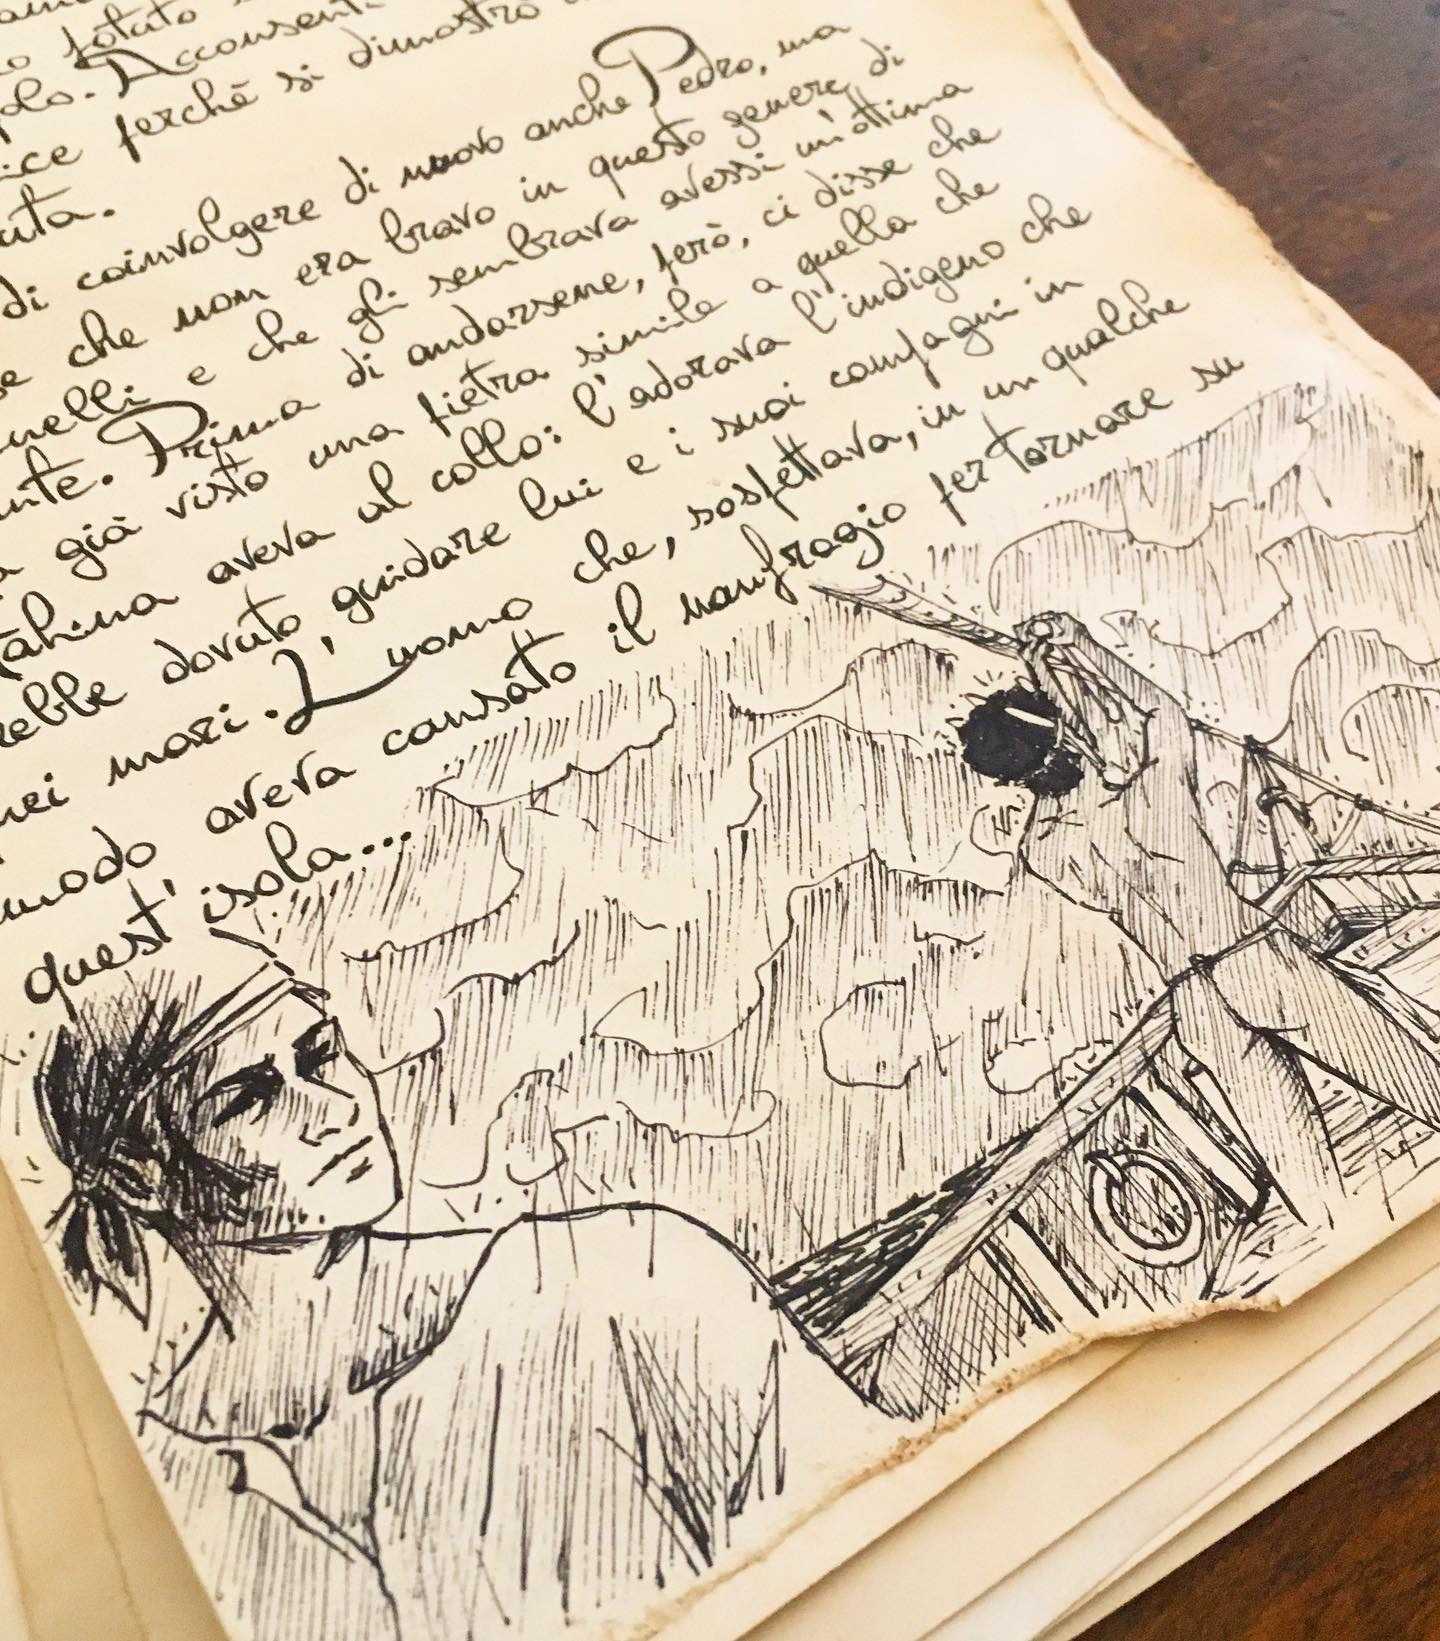 potuto
polo. Acconsentì
perchè si dimostrò
uta.
di coinvolgere di nuovo anche Pedro, ma
che non era bravo in questo genere di
e che gli sembrava avessi un'ottima
nte. Prima di andarsene, però, ci disse che
già visto una pietra simile a quella che
Tahina aveva al collo: l'adorava l'indigeno che
rebbe dovuto guidare lui e i suoi compagni in
nei mari. L'uomo che, sospettava, in un qualche
modo aveva causato il naufragio per tornare su
quest'isola...